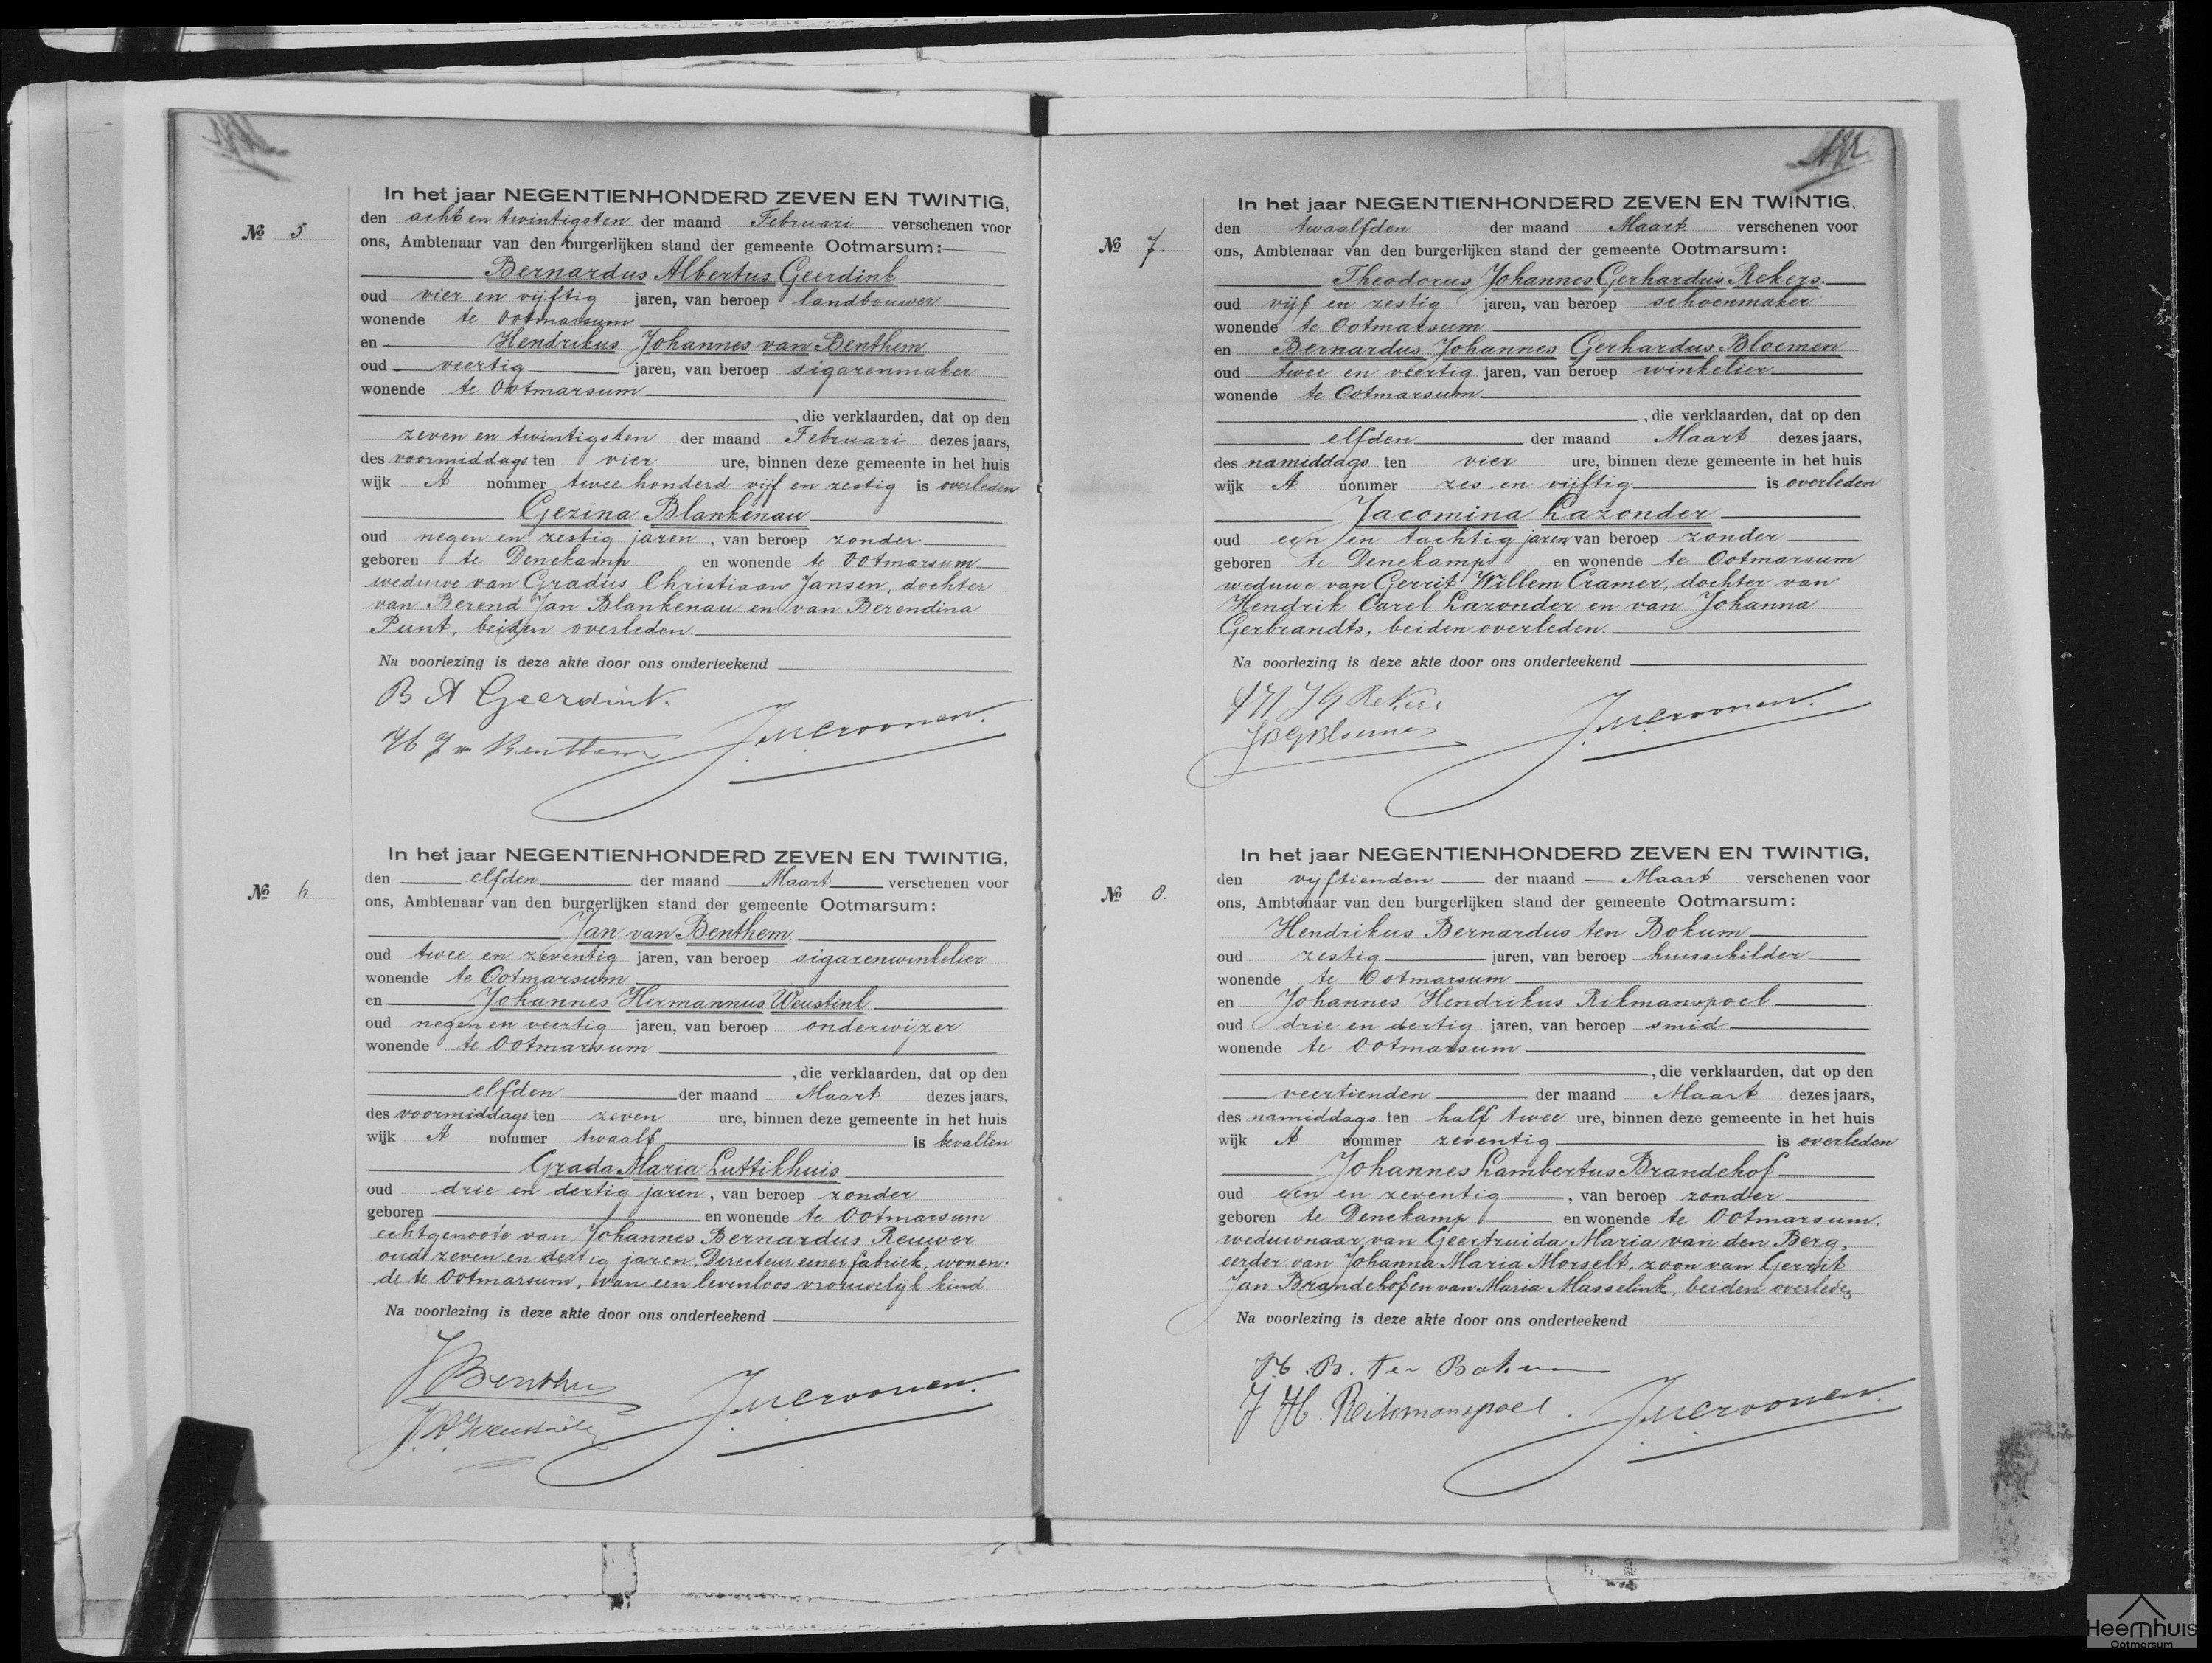 In het jaar NEGENTIENHONDERD ZEVEN EN TWINTIG,
№ 5
den acht en twintigsten der maand Februari verschenen voor
ons, Ambtenaar van den burgerlijken stand der gemeente Ootmarsum:
Bernardus Albertus Geerdink
oud vier en vijftig jaren, van beroep landbouwer
wonende te Ootmarsum
en Hendrikus Johannes van Benthem
oud veertig jaren, van beroep sigarenmaker
wonende te Ootmarsum
, die verklaarden, dat op den
zeven en twintigsten der maand Februari dezes jaars,
des voormiddags ten vier ure, binnen deze gemeente in het huis
wijk A nommer twee honderd vijf en zestig is overleden
Gezina Blankenau
oud negen en zestig jaren, van beroep zonder
geboren te Denekamp en wonende te Ootmarsum
weduwe van Gradus Christiaan Jansen, dochter
van Berend Jan Blankenau en van Berendina
Punt, beiden overleden
Na voorlezing is deze akte door ons onderteekend
B A Geerdink.
H J v Benthem
In het jaar NEGENTIENHONDERD ZEVEN EN TWINTIG,
№ 6.
den elfden der maand Maart verschenen voor
ons, Ambtenaar van den burgerlijken stand der gemeente Ootmarsum:
Jan van Benthem
oud twee en zeventig jaren, van beroep sigarenwinkelier
wonende te Ootmarsum
en Johannes Hermannus Weustink
oud negen en veertig jaren, van beroep onderwijzer
wonende te Ootmarsum
, die verklaarden, dat op den
elfden der maand Maart dezes jaars,
des voormiddags ten zeven ure, binnen deze gemeente in het huis
wijk A nommer twaalf is bevallen
Grada Maria Luttikhuis
oud drie en dertig jaren, van beroep zonder
geboren en wonende te Ootmarsum
echtgenoote van Johannes Bernardus Reuwer
oud zeven en dertig jaren, Directeur eener fabriek, wonen-
de te Ootmarsum, van een levenloos vrouwelijk kind
Na voorlezing is deze akte door ons onderteekend
In het jaar NEGENTIENHONDERD ZEVEN EN TWINTIG,
№ 7.
den twaalfden der maand Maart verschenen voor
ons, Ambtenaar van den burgerlijken stand der gemeente Ootmarsum:
Theodorus Johannes Gerhardus Rekers.
oud vijf en zestig jaren, van beroep schoenmaker
wonende te Ootmarsum
en Bernardus Johannes Gerhardus Bloemen
oud twee en veertig jaren, van beroep winkelier
wonende te Ootmarsum
, die verklaarden, dat op den
elfden der maand Maart dezes jaars,
des namiddags ten vier ure, binnen deze gemeente in het huis
wijk A. nommer zes en vijftig is overleden
Jacomina Lazonder
oud een en tachtig jaren van beroep zonder
geboren te Denekamp en wonende te Ootmarsum
weduwe van Gerrit Willem Cramer, dochter van
Hendrik Carel Lazonder en van Johanna
Gerbrandts, beiden overleden.
Na voorlezing is deze akte door ons onderteekend
In het jaar NEGENTIENHONDERD ZEVEN EN TWINTIG,
№ 8.
den vijftienden der maand Maart verschenen voor
ons, Ambtenaar van den burgerlijken stand der gemeente Ootmarsum:
Hendrikus Bernardus ten Bokum
oud zestig jaren, van beroep huisschilder
wonende te Ootmarsum
en Johannes Hendrikus Rikmanspoel
oud drie en dertig jaren, van beroep smid
wonende te Ootmarsum
, die verklaarden, dat op den
veertienden der maand Maart dezes jaars,
des namiddags ten half twee ure, binnen deze gemeente in het huis
wijk A nommer zeventig is overleden
Johannes Lambertus Brandehof
oud een en zeventig , van beroep zonder
geboren te Denekamp en wonende te Ootmarsum.
weduwnaar van Geertruida Maria van den Berg,
eerder van Johanna Maria Morselt, zoon van Gerrit
Jan Brandehof en van Maria Masselink, beiden overleden
Na voorlezing is deze akte door ons onderteekend
H. B. ten Bokum
J H. Rikmanspoel.
Heemhuis
Ootmarsum